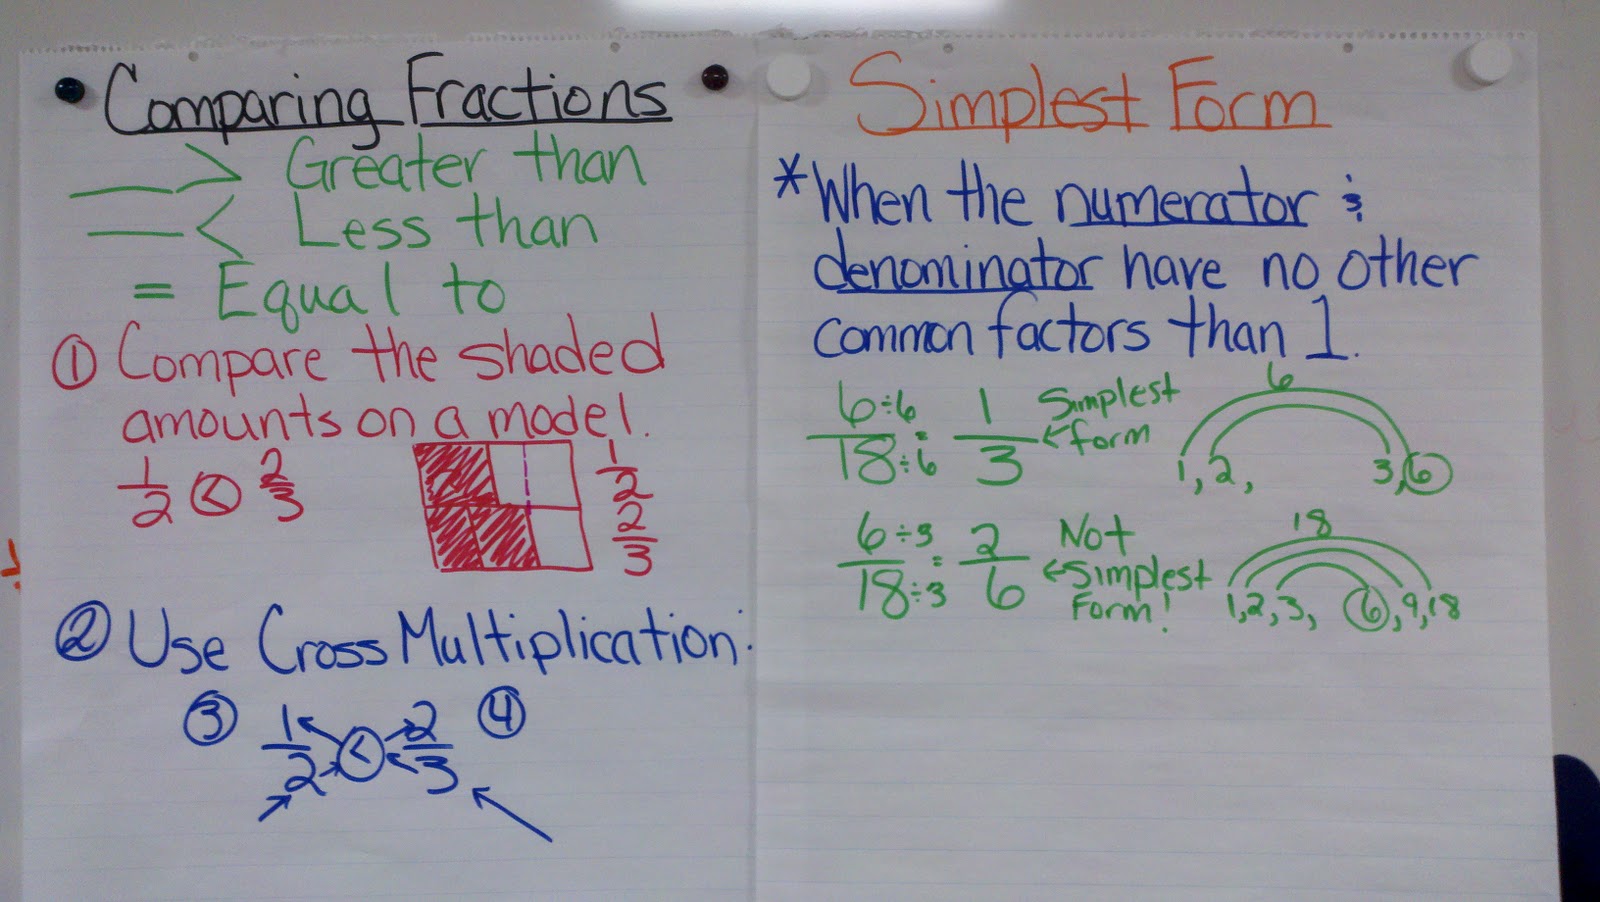 Comparing Fractions
> Greater than
< Less than
= Equal to
① Compare the shaded
amounts on a model.
1/2 < 2/3
1/2
2/3
② Use Cross Multiplication:
③ 1/2 < 2/3 ④
Simplest Form
*When the numerator &
denominator have no other
common factors than 1.
6÷6/18÷6 = 1/3 ← Simplest
form
6
1, 2, 3, 6
6÷3/18÷3 = 2/6 Not
← Simplest
Form!
18
1, 2, 3, 6, 9, 18